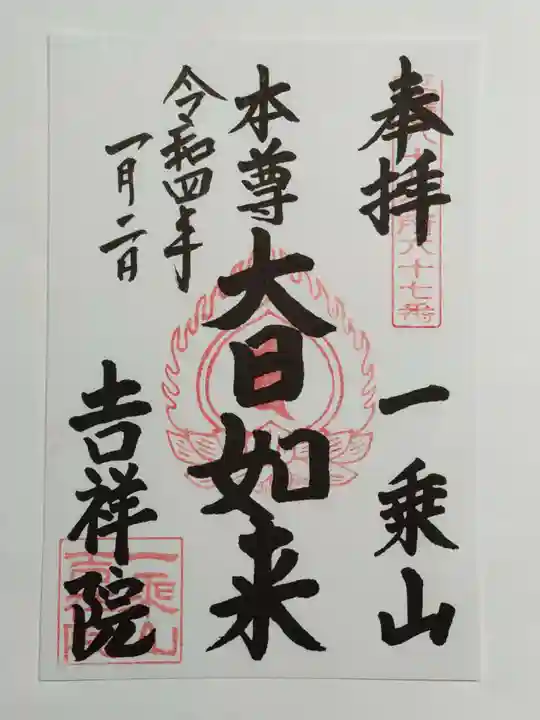 奉拝
一乗山
本尊
大日如来
令和四年
一月二日
吉祥院
十七番